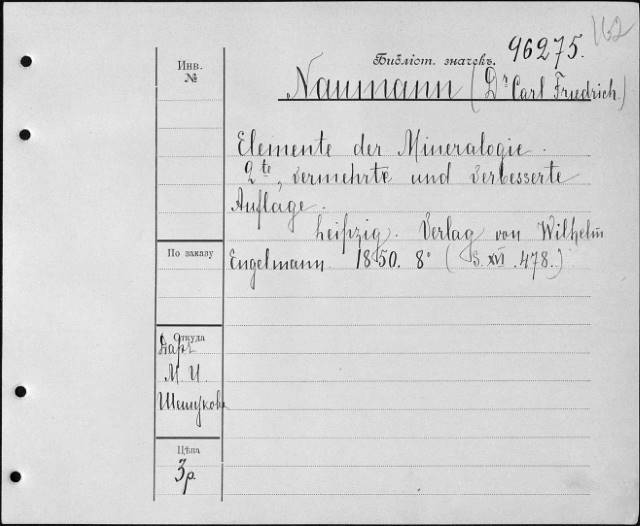 162
Инв.
№
Библіот. значекъ.
96275.
Naumann (Dr Carl Friedrich.)
Elemente der Mineralogie.
2te, vermehrte und verbesserte
Auflage.
Leipzig. Verlag von Wilhelm
По заказу
Engelmann 1850. 8° (S. XVI. 478.)
Откуда
Даръ
М. И.
Цѣна
3р